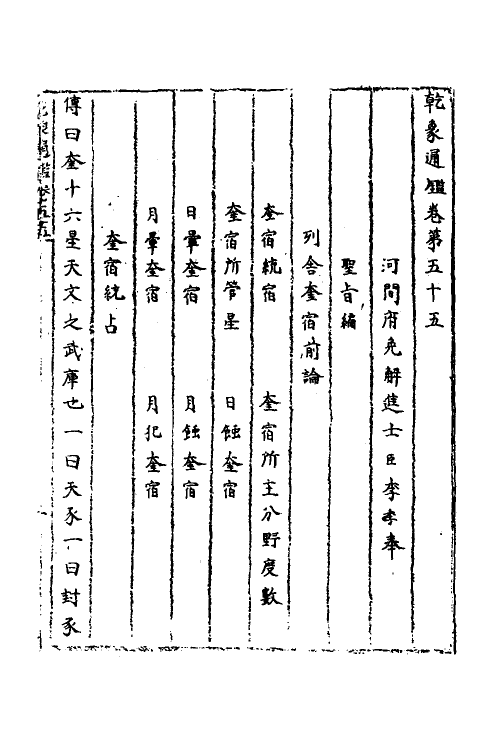 乾象通鑑卷第五十五
河間府免解進士臣李季奉
聖旨編
列舍奎宿前論
奎宿統宿 奎宿所主分野度數
奎宿所管星 日蝕奎宿
日暈奎宿 月蝕奎宿
月暈奎宿 月犯奎宿
奎宿統占
傳曰奎十六星天文之武庫也一曰天豕一曰封豕